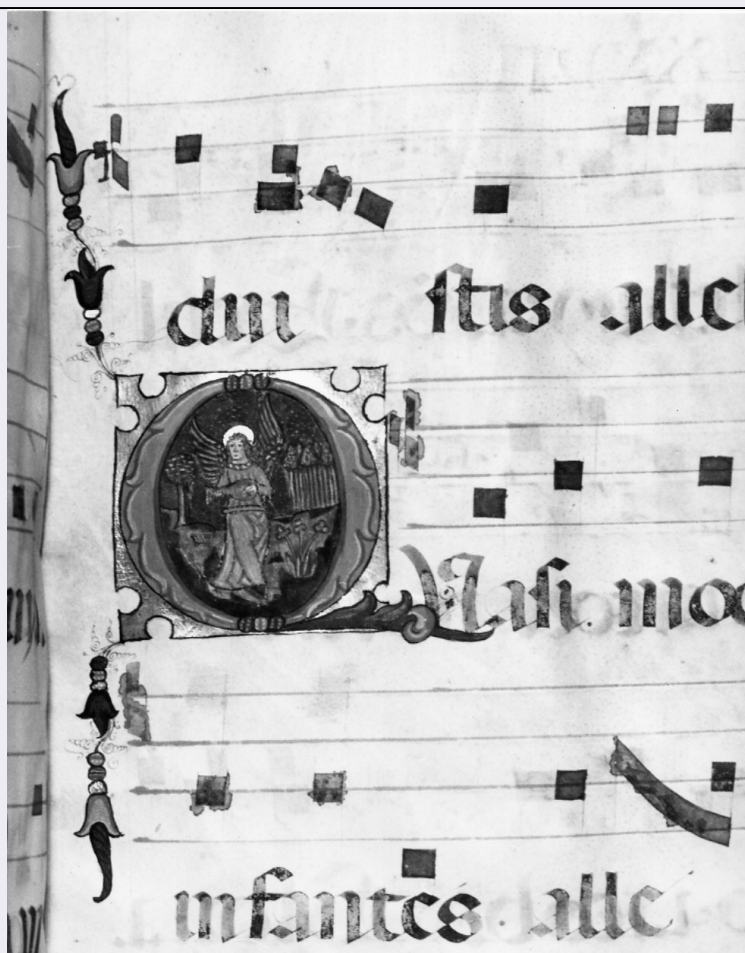 dui stis alle
Quasi mo
infantes alle